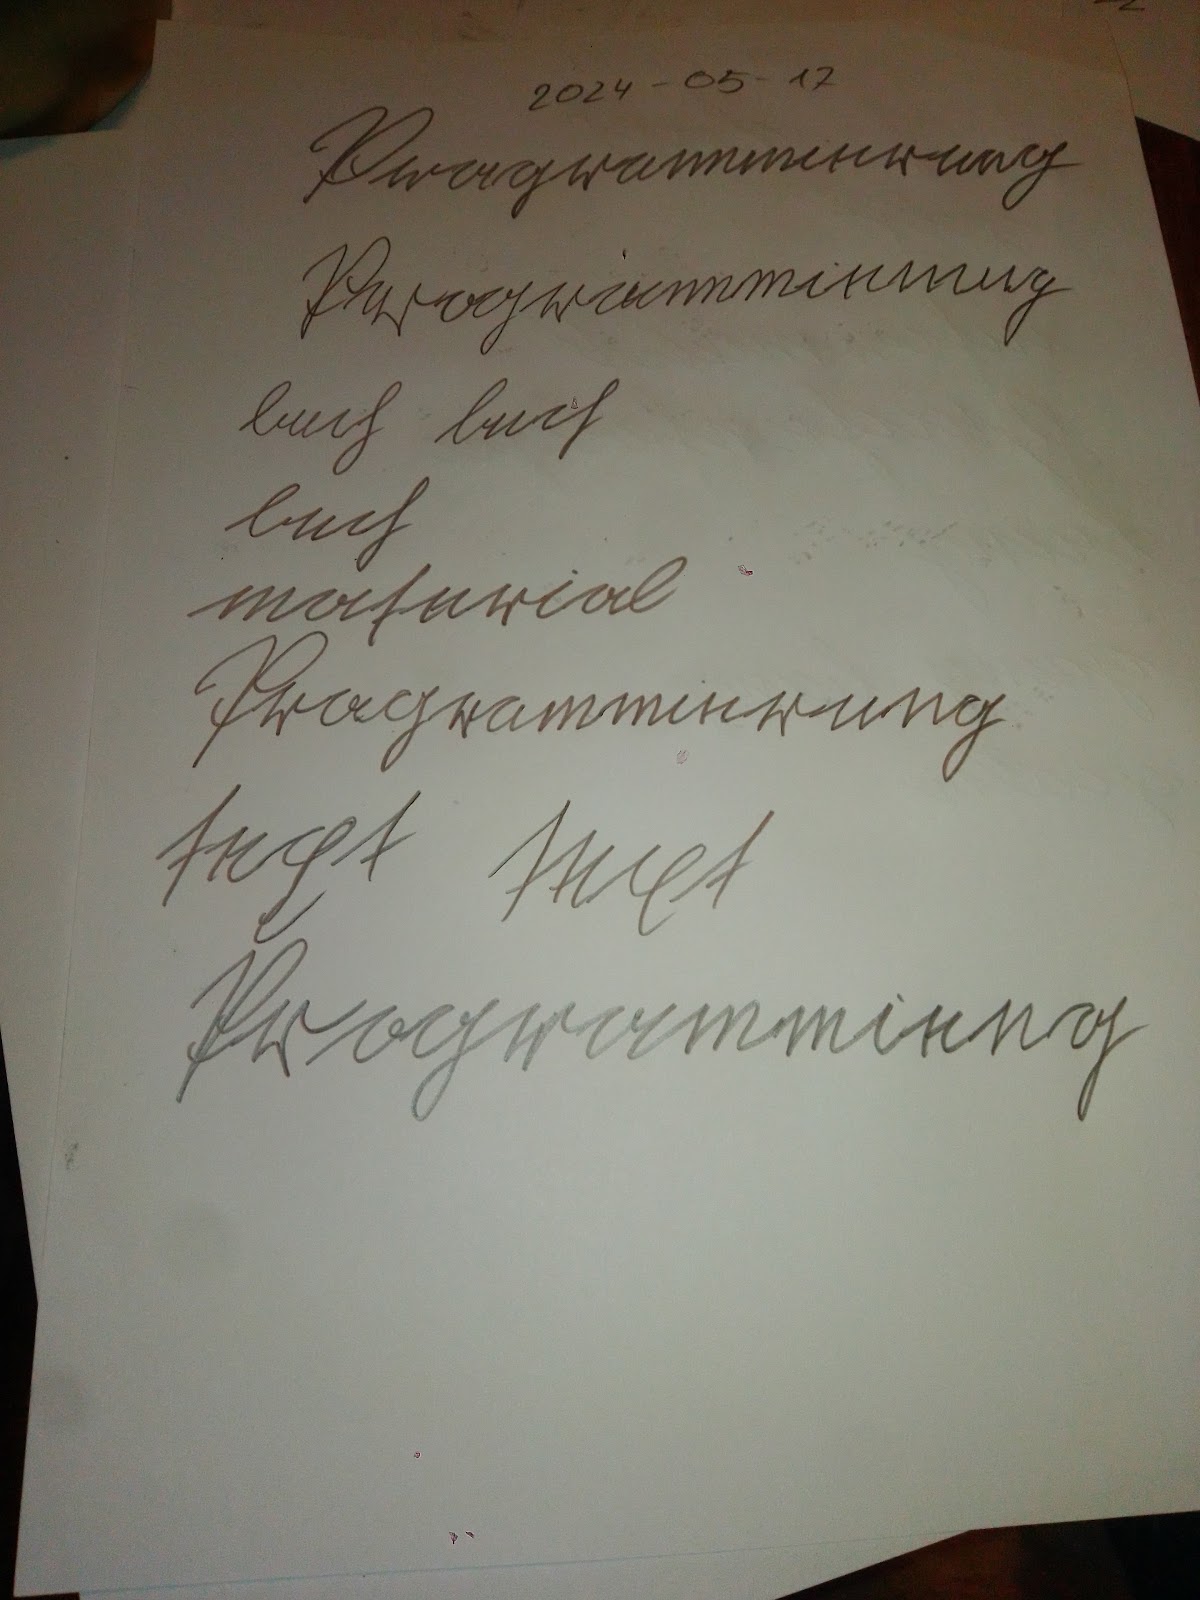 2024-05-17
Programmierung
Programmierung
buch buch
buch
material
Programmierung
text text
Programmierung